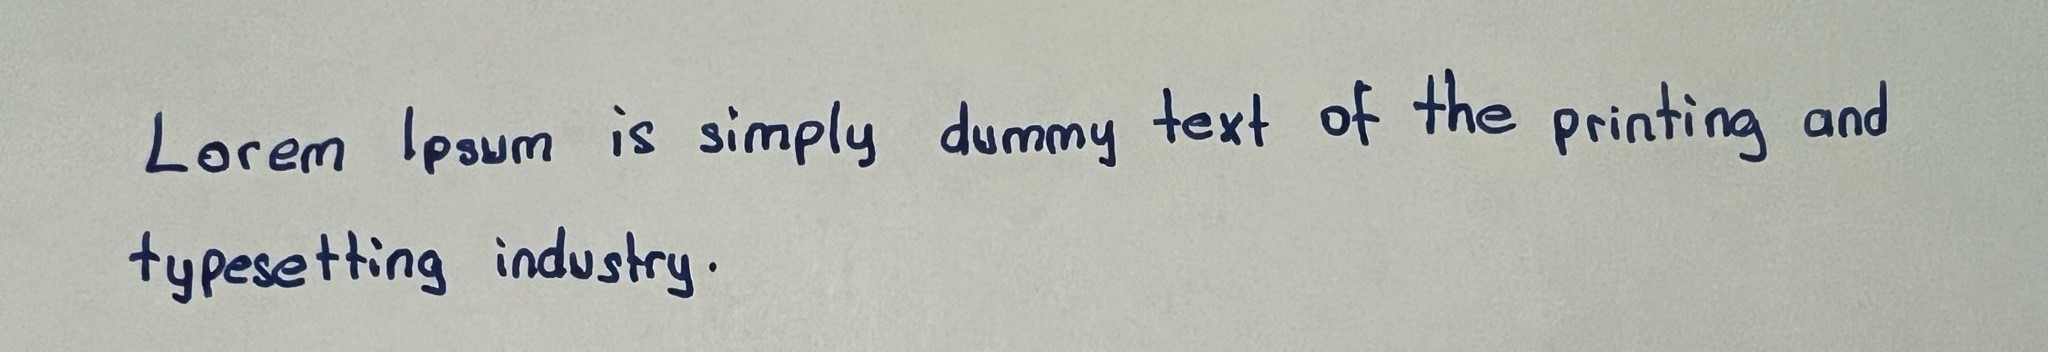 Lorem Ipsum is simply dummy text of the printing and
typesetting industry.